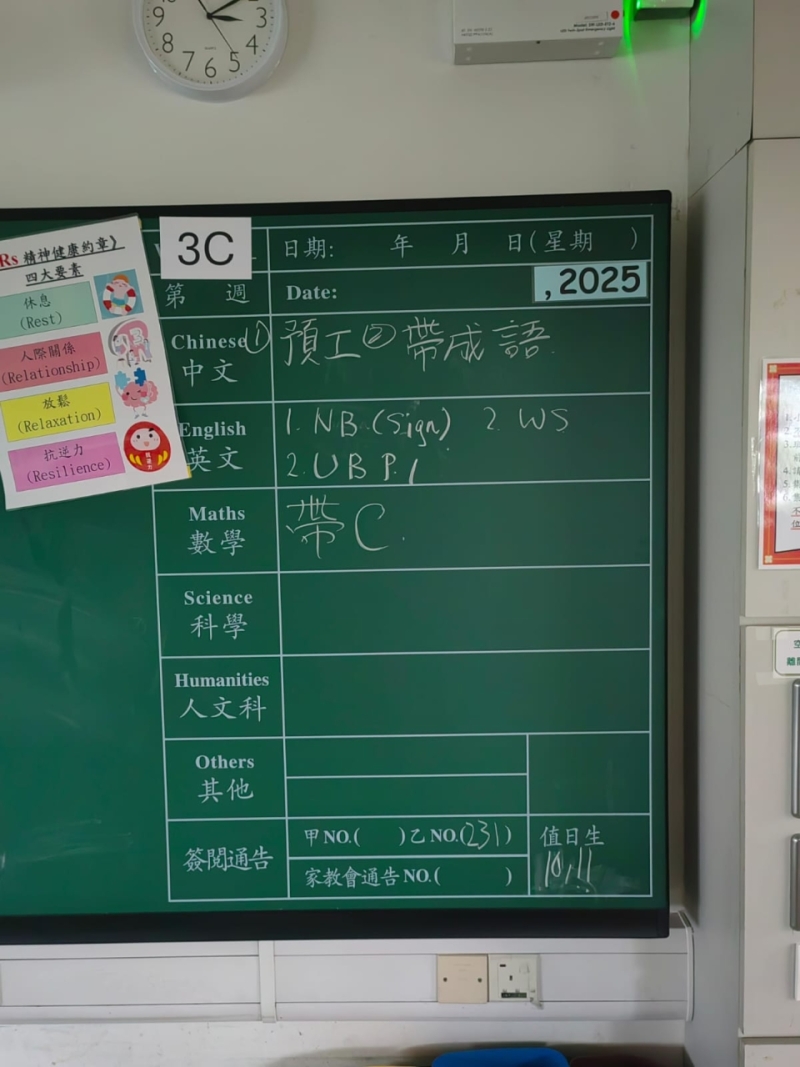 9 3 8 4 7 6 5
QUARTZ
Rs 精神健康約章》
四大要素
休息
(Rest)
人際關係
(Relationship)
放鬆
(Relaxation)
抗逆力
(Resilience)
3C
日期: 年 月 日(星期 )
第 週
Date: , 2025
Chinese ① 預工 ② 帶成語
中文
English 1. NB (Sign) 2. WS
英文 2. UB P.1
Maths 帶C.
數學
Science
科學
Humanities
人文科
Others
其他
簽閱通告
甲NO.( )乙NO.(231)
家教會通告NO.( )
值日生
10, 11